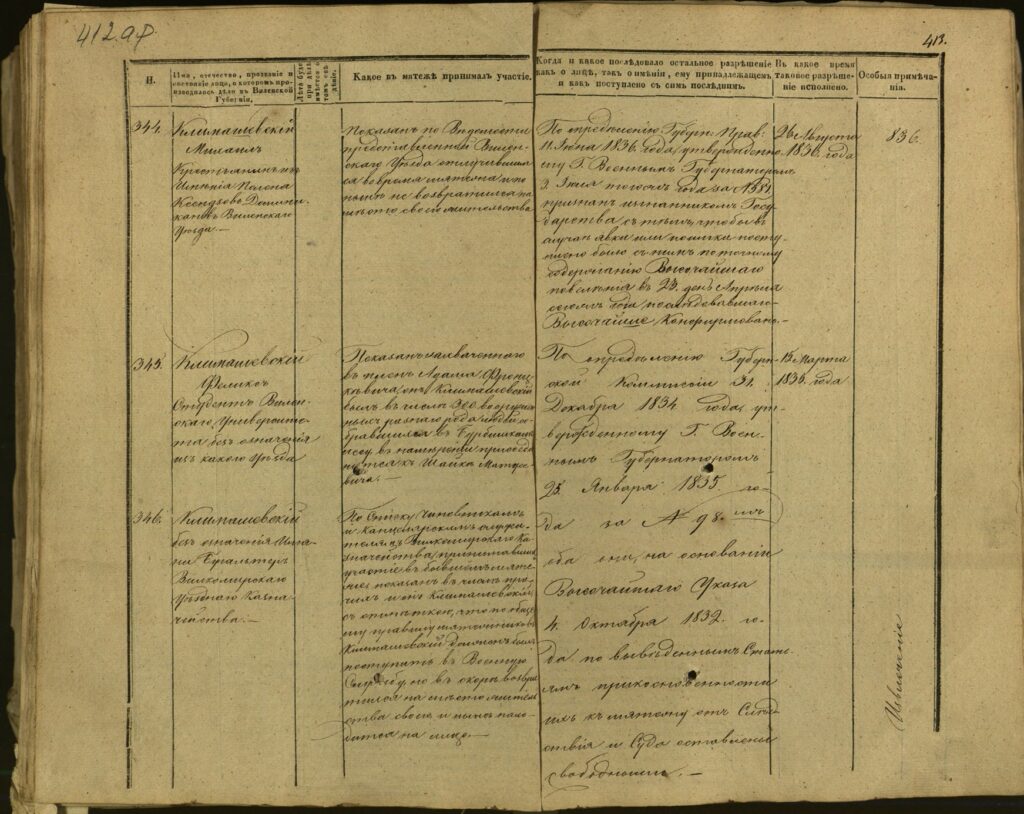 412.аф.
413.
Н.
Имя, отчество, прозваніе и
состояніе лица, о которомъ про-
изводилось дѣло въ Виленской
Губерніи.
Лѣта буде
при дѣлѣ
имѣется о
томъ свѣ-
дѣніе.
Какое въ мятежѣ принималъ участіе.
Когда и какое послѣдовало остальное разрѣшеніе
какъ о лицѣ, такъ о имѣніи, ему принадлежащемъ
и какъ поступлено съ симъ послѣднимъ.
Въ какое время
таковое разрѣше-
ніе исполнено.
Особыя примѣча-
нія.
344.
Климашевскій
Михаилъ
Крестьянинъ изъ
Имѣнія
Ксендзовъ Домини-
кановъ Виленскаго
Уѣзда.—
Показанъ по Вѣдомости
представленной Вилен-
скаго Уѣзда отлучившим-
ся во время мятежа и по
нынѣ не возвратился на
мѣсто своего жительства
По опредѣленію Губерн: Прав:
11. Іюня 1836. года, утвержденно-
му Г. Военнымъ Губернаторомъ
3. Іюля тогожъ года за № 1381
признанъ изгнанникомъ Госу-
дарства съ тѣмъ, чтобы въ
случаѣ явки или поимки посту-
плено было съ нимъ по точному
содержанію Высочайшаго
повелѣнія въ 23. день Апрѣля
сего года послѣдовавшаго
Высочайше Конфирмован.—
26 Августа
1836. года
836.
345.
Климашевскій
Феликсъ
Студентъ Вилен-
скаго Университе-
та безъ означенія
изъ какого Уѣзда
Показанъ захваченнаго
въ плѣнъ Адама
онъ Климашевскій
былъ въ числѣ 300 вооружен-
ныхъ разнаго рода людей со-
бравшихся въ
лѣсу въ намѣреніи присоеди-
ниться къ Шайкѣ Матусе-
вича.—
По опредѣленію Губерн-
ской Коммисіи 31.
Декабря 1834 года, ут-
вержденному Г. Воен-
нымъ Губернаторомъ
25. Января 1835 го-
да за № 98. имъ
оба они, на основаніи
Высочайшаго Указа
4. Октября 1832. го-
да по выведеннымъ Стать-
ямъ прикосновенности
ихъ къ мятежу отъ Слѣд-
ствія и Суда оставлены
свободными.—
15 Марта
1835. года
346.
Климашевскій
безъ означенія Име-
ни Бухгалтеръ
Вилкомирскаго
Уѣзднаго Казна-
чейства.—
По Списку Чиновникамъ
и Канцелярскимъ служи-
телямъ Вилкомирскаго Ка-
значейства, принимавшимъ
участіе въ бывшемъ мяте-
жѣ, показанъ въ числѣ про-
чихъ и онъ Климашевскій
съ отмѣткою, что по обще-
му правилу мятежниковъ
Климашевскій долженъ былъ
поступить въ Военную
Службу, но въ скорѣ возвра-
тился на мѣсто житель-
ства своего и нынѣ нахо-
дится на лицо.—